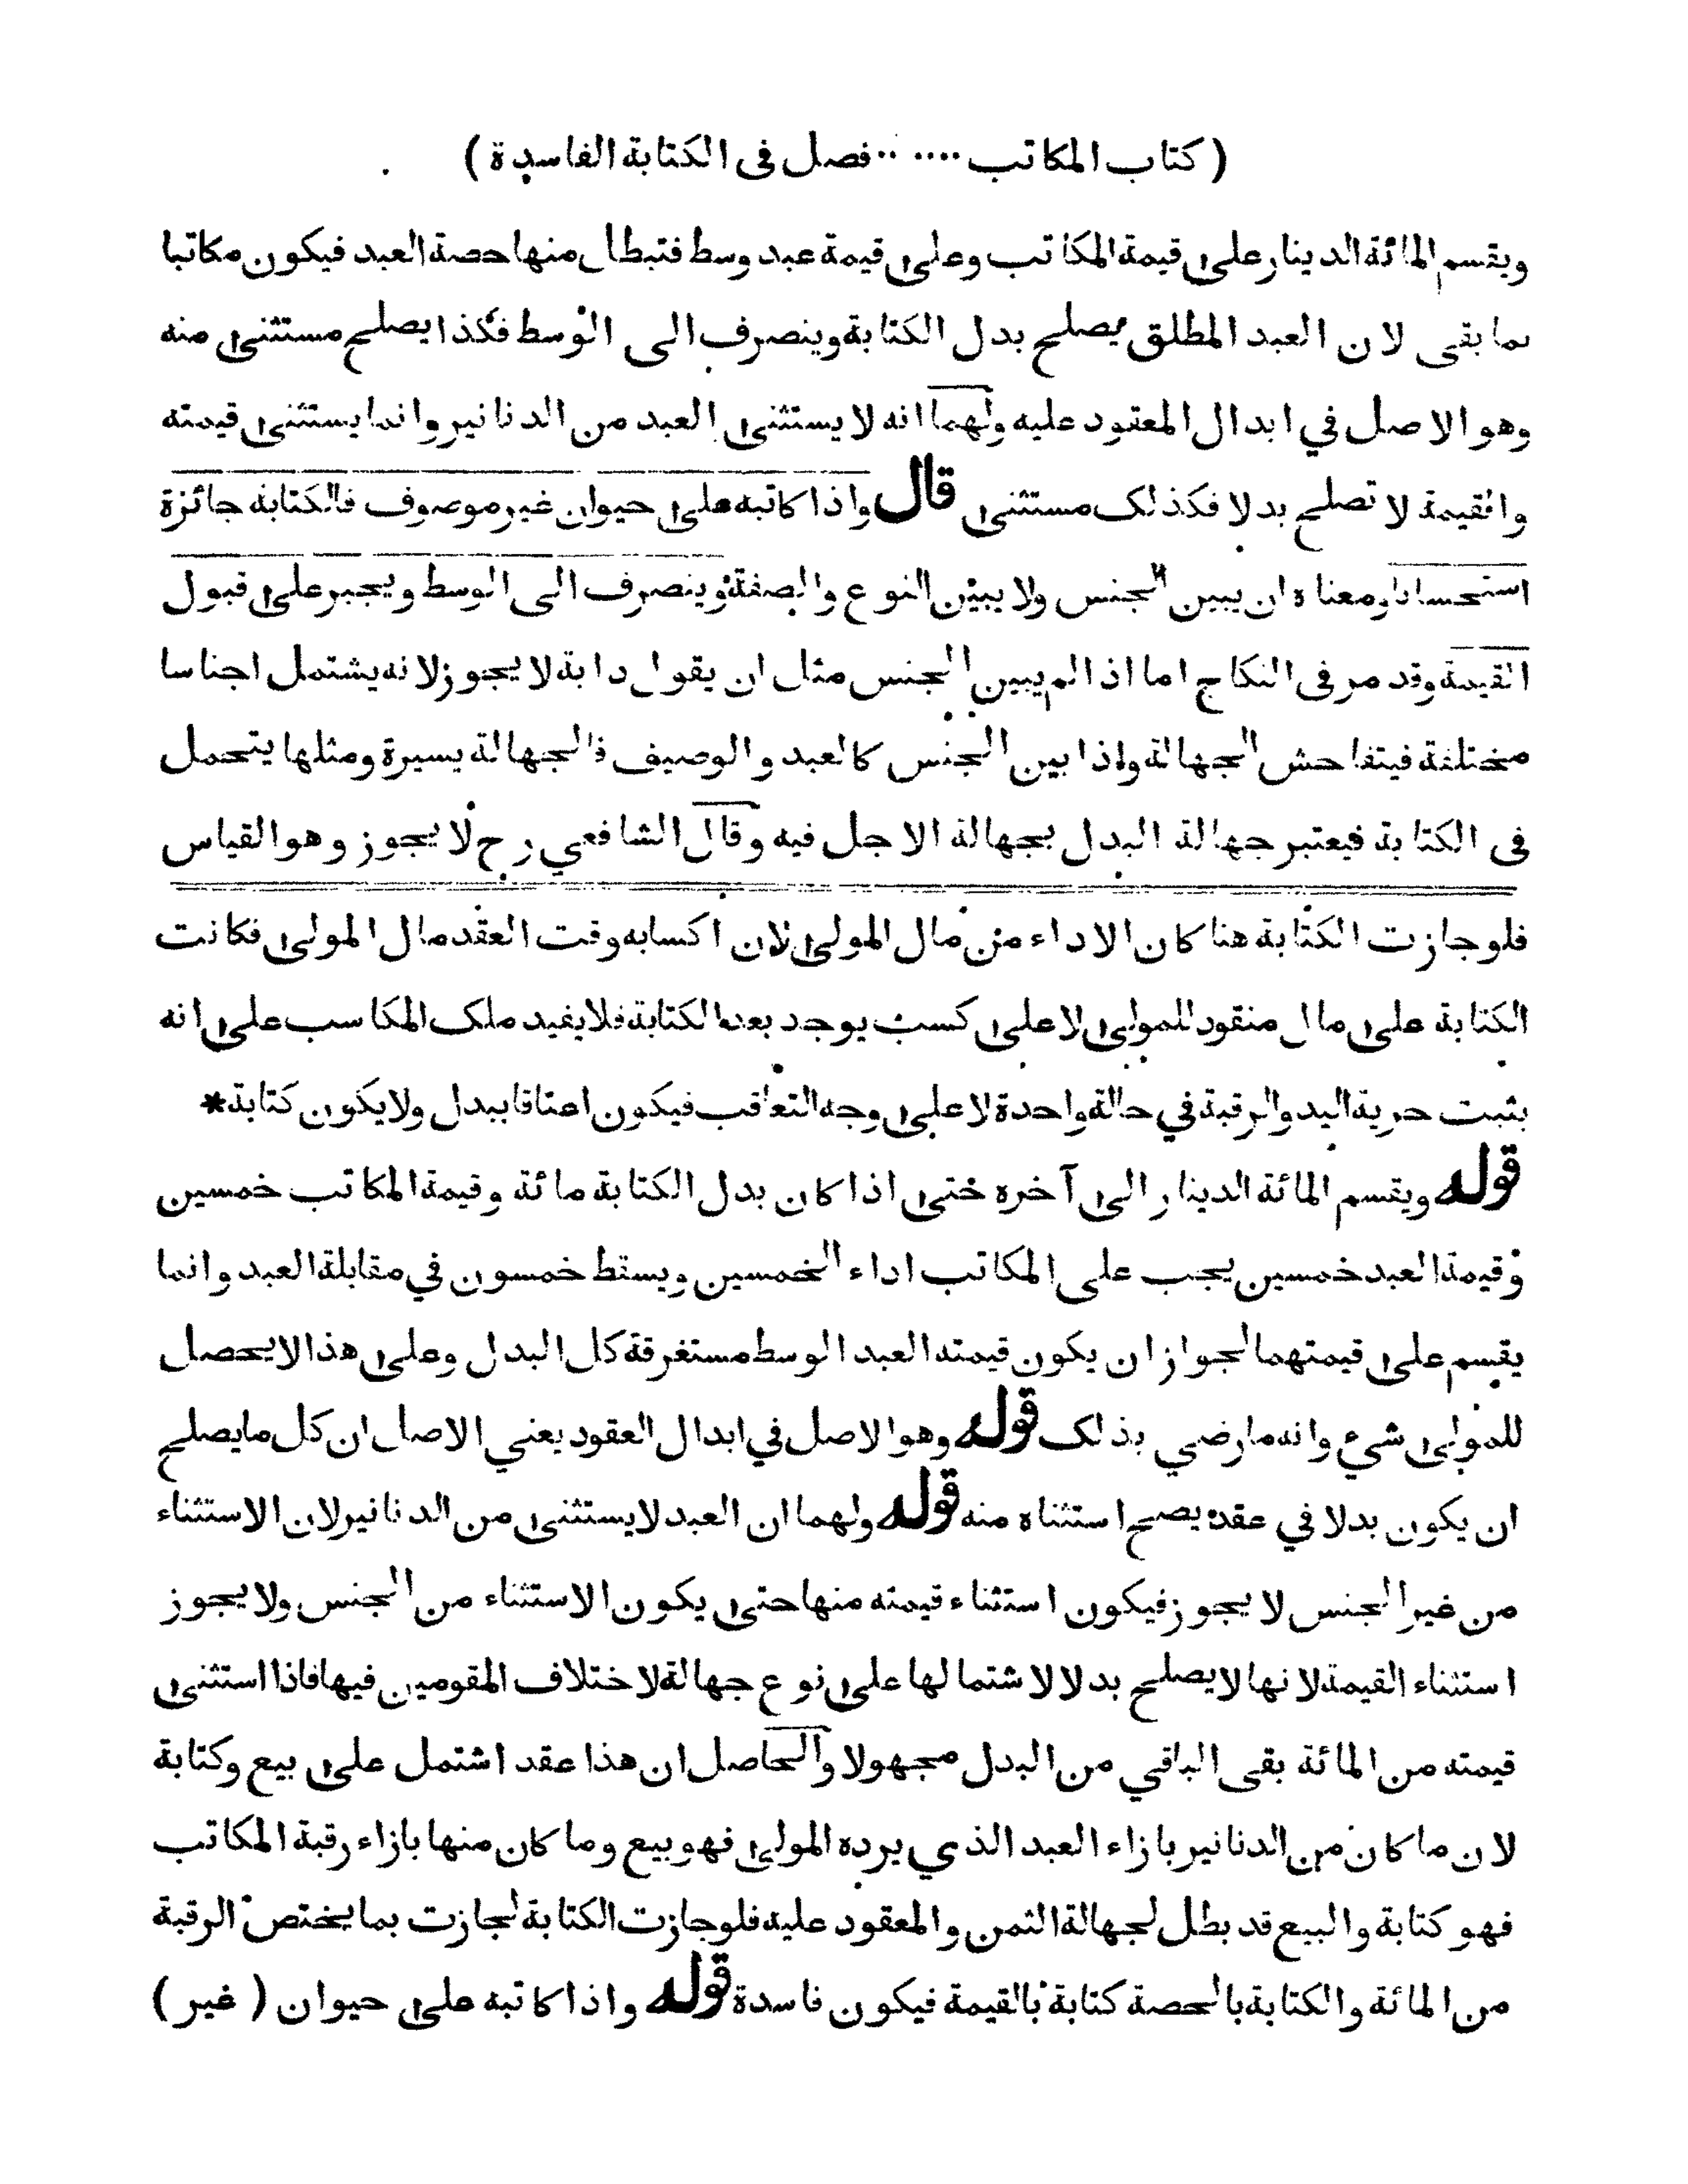 ( كتاب المكاتب .... .. فصل فى الكتابة الفاسدة )
ويقسم المائة الدينار على قيمة المكاتب وعلى قيمة عبد وسط فتبطل منها حصة العبد فيكون مكاتبا
بما بقى لان العبد المطلق يصلح بدل الكتابة وينصرف الى الوسط فكذا يصلح مستثنى منه
وهو الاصل في ابدال المعقود عليه ولهما انه لا يستثنى العبد من الدنانير وانما يستثنى قيمته
والقيمة لا تصلح بدلا فكذلك مستثنى قال واذا كاتبه على حيوان غير موصوف فالكتابة جائزة
استحسانا ومعناه ان يبين الجنس ولا يبين النوع والصفة وينصرف الى الوسط ويجبر على قبول
القيمة وقد مر فى النكاح اما اذا لم يبين الجنس مثل ان يقول دابة لا يجوز لانه يشتمل اجناسا
مختلفة فيتفاحش الجهالة واذا بين الجنس كالعبد والوصيف فالجهالة يسيرة ومثلها يتحمل
فى الكتابة فيعتبر جهالة البدل بجهالة الاجل فيه وقال الشافعي رح لا يجوز وهو القياس
فلو جازت الكتابة هنا كان الاداء من مال المولى لان اكسابه وقت العقد مال المولى فكانت
الكتابة على مال منقود للمولى لا على كسب يوجد بعد الكتابة فلا يفيد ملك المكاسب على انه
يثبت حرية اليد والرقبة في حالة واحدة لا على وجه التعاقب فيكون اعتاقا ببدل ولا يكون كتابة*
قوله ويقسم المائة الدينار الى آخره حتى اذا كان بدل الكتابة مائة وقيمة المكاتب خمسين
وقيمة العبد خمسين يجب على المكاتب اداء الخمسين ويسقط خمسون في مقابلة العبد وانما
يقسم على قيمتهما لجواز ان يكون قيمته العبد الوسط مستغرقة كل البدل وعلى هذا لا يحصل
للمولى شيء وانه ما رضي بذلك قوله وهو الاصل في ابدال العقود يعني الاصل ان كل ما يصلح
ان يكون بدلا في عقد يصح استثناه منه قوله ولهما ان العبد لا يستثنى من الدنانير لان الاستثناء
من غير الجنس لا يجوز فيكون استثناء قيمته منها حتى يكون الاستثناء من الجنس ولا يجوز
استثناء القيمة لانها لا يصلح بدلا لاشتمالها على نوع جهالة لاختلاف المقومين فيها فاذا استثنى
قيمته من المائة بقى الباقي من البدل مجهولا والحاصل ان هذا عقد اشتمل على بيع وكتابة
لان ما كان من الدنانير بازاء العبد الذي يرده المولى فهو بيع وما كان منها بازاء رقبة المكاتب
فهو كتابة والبيع قد بطل لجهالة الثمن والمعقود عليه فلو جازت الكتابة لجازت بما يختص الرقبة
من المائة والكتابة بالحصة كتابة بالقيمة فيكون فاسدة قوله واذا كاتبه على حيوان ( غير )